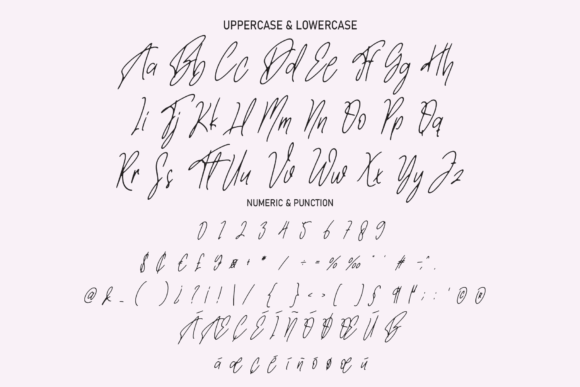 UPPERCASE & LOWERCASE
Aa Bb Cc Dd Ee Ff Gg Hh
Ii Jj Kk Ll Mm Nn Oo Pp Qq
Rr Ss Tt Uu Vv Ww Xx Yy Zz
NUMERIC & PUNCTION
0 1 2 3 4 5 6 7 8 9
$ ¢ € £ ¥ ¤ + • / ÷ = % ‰ " ' # -
@ & _ ( ) ¿ ? ¡ ! \ / { } < > [ ] § ¶ ; : ' ©
Á Æ Ç É Í Ñ Ó Ø Œ Ú ß
á æ ç é í ñ ó ø œ ú